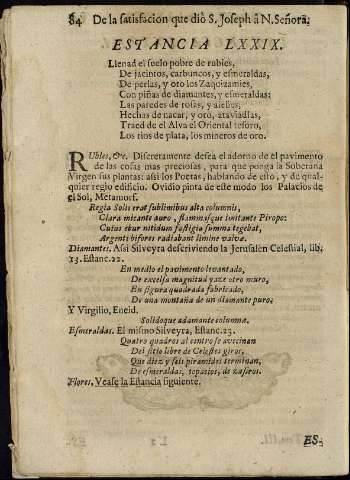 84 De la satisfacion que diò S. Joseph â N. Señora.
ESTANCIA LXXIX.
Llenad el suelo pobre de rubies,
De jacintos, carbuncos, y esmeraldas,
De perlas, y oro los Zaquizamies,
Con piñas de diamantes, y esmeraldas;
Las paredes de rosas, y alelies,
Hechas de nacar, y oro, ataviadlas,
Traed de el Alva el Oriental tesoro,
Los rios de plata, los mineros de oro.
RUbies, &c. Discretamente desea el adorno de el pavimento
de las cosas mas preciosas, para que ponga la Soberana
Virgen sus plantas: assi los Poetas, hablando de esto, y de qual-
quier regio edificio. Ovidio pinta de este modo los Palacios de
el Sol, Metamorf.
Regia Solis erat sublimibus alta columnis,
Clara micante auro, flammasque imitante Piropo:
Cuius ebur nitidum fastigia summa tegebat,
Argenti bifores radiabant limine valvæ.
Diamantes. Assi Silveyra descriviendo la Jerusalen Celestial, lib.
13. Estanc. 22.
En medio el pavimento levantado,
De excelsa magnitud yaze otro muro,
En figura quadrada fabricado,
De una montaña de un diamante puro.
Y Virgilio, Eneid.
Solidoque adamante columnæ.
Esmeraldas. El mismo Silveyra, Estanc. 23.
Quatro quadros al centro se avecinan
Del sitio libre de Celestes giros,
Que diez y seis piramides terminan,
De esmeraldas, topacios, de zafiros.
Flores. Vease la Estancia siguiente.
ES-